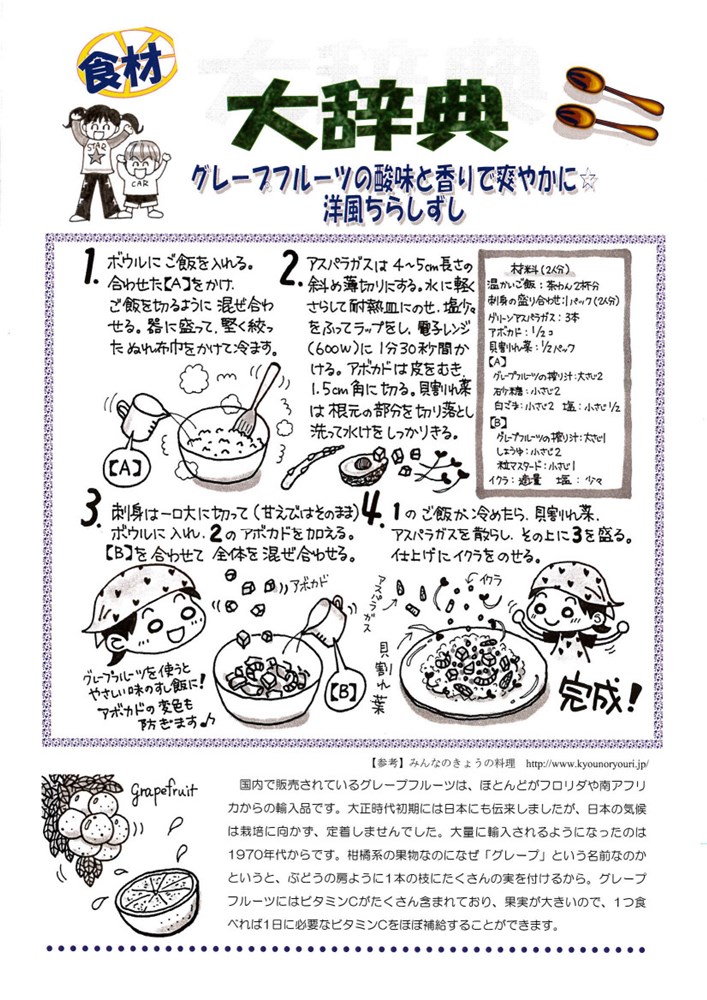 食材
大辞典
STAR
CAR
グレープフルーツの酸味と香りで爽やかに☆
洋風ちらしずし
1. ボウルにご飯を入れる。
合わせた【A】をかけ、
ご飯を切るように混ぜ合わ
せる。器に盛って、堅く絞っ
たぬれ布巾をかけて冷ます。
【A】
2. アスパラガスは4〜5cm長さの
斜め薄切りにする。水に軽く
さらして耐熱皿にのせ、塩少々
をふってラップをし、電子レンジ
(600W)に1分30秒間か
ける。アボカドは皮をむき、
1.5cm角に切る。貝割れ菜
は根元の部分を切り落とし
洗って水けをしっかりきる。
材料(2人分)
温かいご飯:茶わん2杯分
刺身の盛り合わせ:1パック(2人分)
グリーンアスパラガス:3本
アボカド:1/2コ
貝割れ菜:1/2パック
【A】
グレープフルーツの搾り汁:大さじ2
砂糖:小さじ2
白ごま:小さじ2 塩:小さじ1/2
【B】
グレープフルーツの搾り汁:大さじ1
しょうゆ:小さじ2
粒マスタード:小さじ1
イクラ:適量 塩:少々
3. 刺身は一口大に切って(甘えびはそのまま)
ボウルに入れ、2のアボカドを加える。
【B】を合わせて全体を混ぜ合わせる。
アボカド
【B】
グレープフルーツを使うと
やさしい味のすし飯に!
アボカドの変色も
防ぎます♪
4. 1のご飯が冷めたら、貝割れ菜、
アスパラガスを散らし、その上に3を盛る。
仕上げにイクラをのせる。
アスパラガス
イクラ
貝割れ菜
完成!
【参考】みんなのきょうの料理 http://www.kyounoryouri.jp/
Grapefruit
国内で販売されているグレープフルーツは、ほとんどがフロリダや南アフリ
カからの輸入品です。大正時代初期には日本にも伝来しましたが、日本の気候
は栽培に向かず、定着しませんでした。大量に輸入されるようになったのは
1970年代からです。柑橘系の果物なのになぜ「グレープ」という名前なのか
というと、ぶどうの房ように1本の枝にたくさんの実を付けるから。グレープ
フルーツにはビタミンCがたくさん含まれており、果実が大きいので、1つ食
べれば1日に必要なビタミンCをほぼ補給することができます。